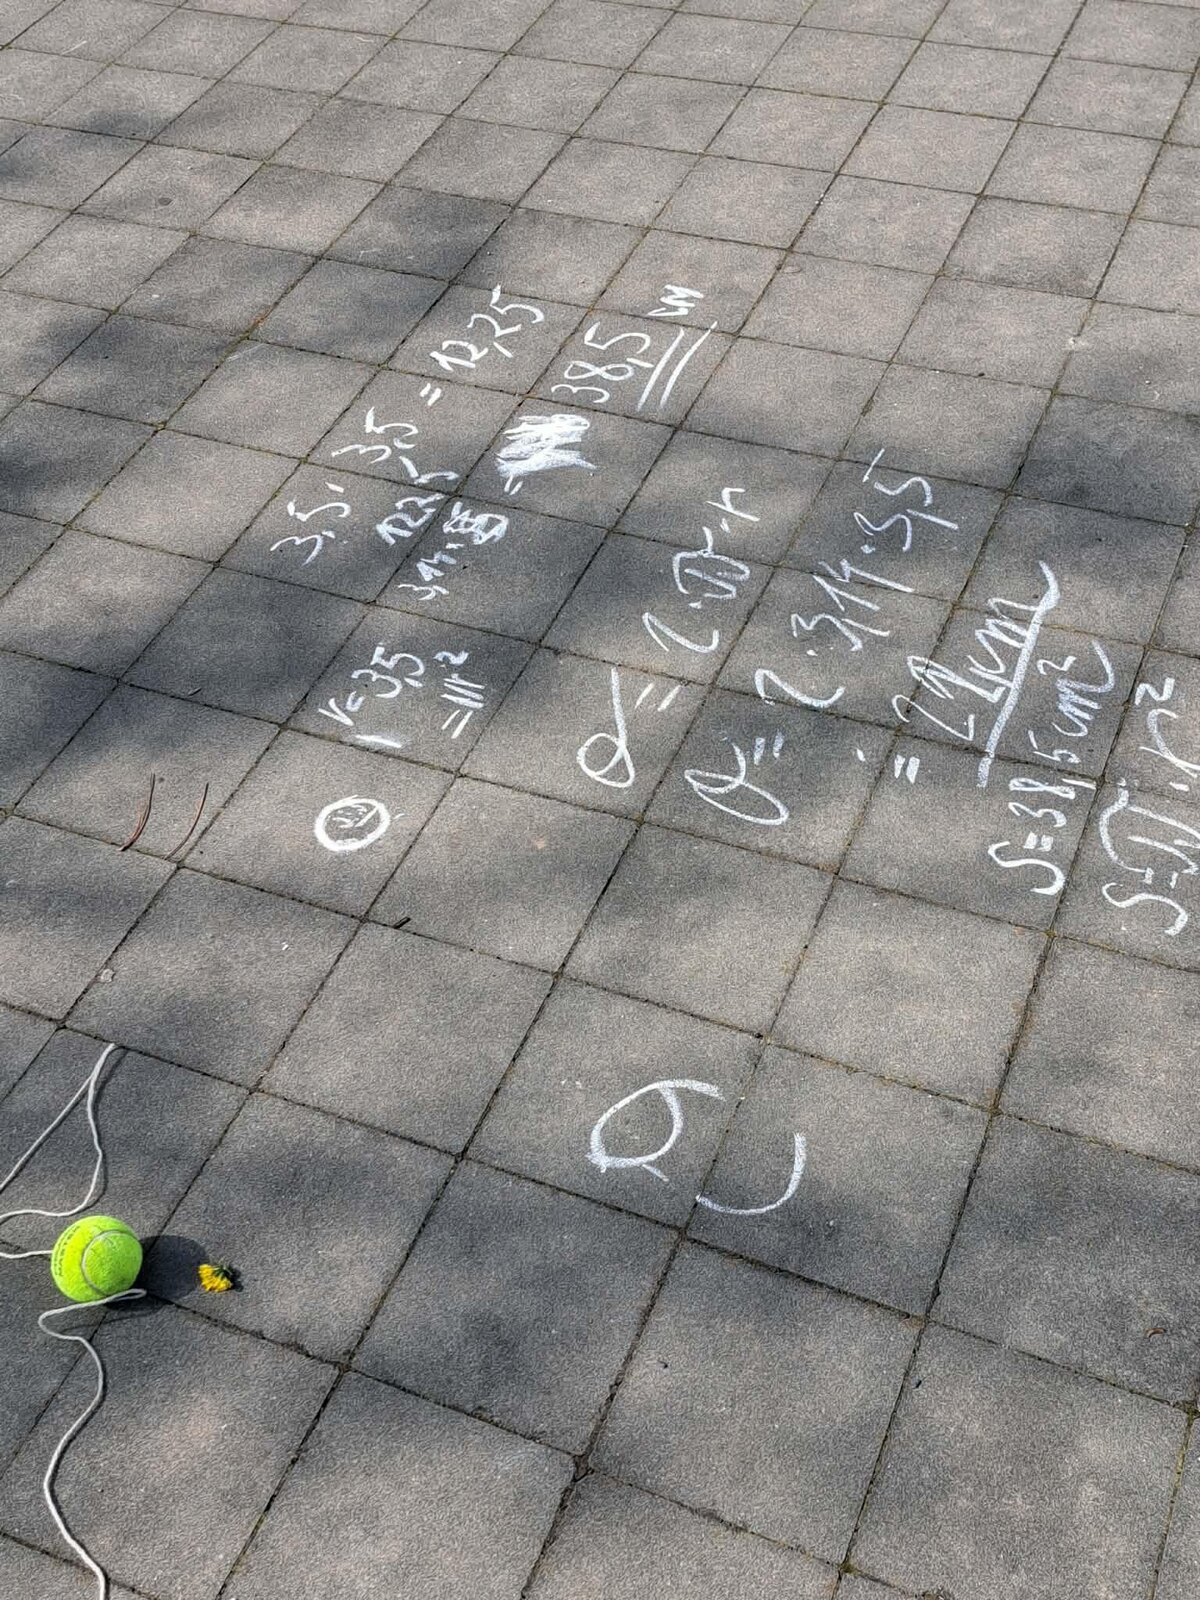 3,5 · 3,5 = 12,25
12,25
3,14 ·
= 38,5 cm
r = 3,5
= π r²
O = 2 · π · r
O = 2 · 3,14 · 3,5
= 22 cm
S = 38,5 cm²
S = π · r²